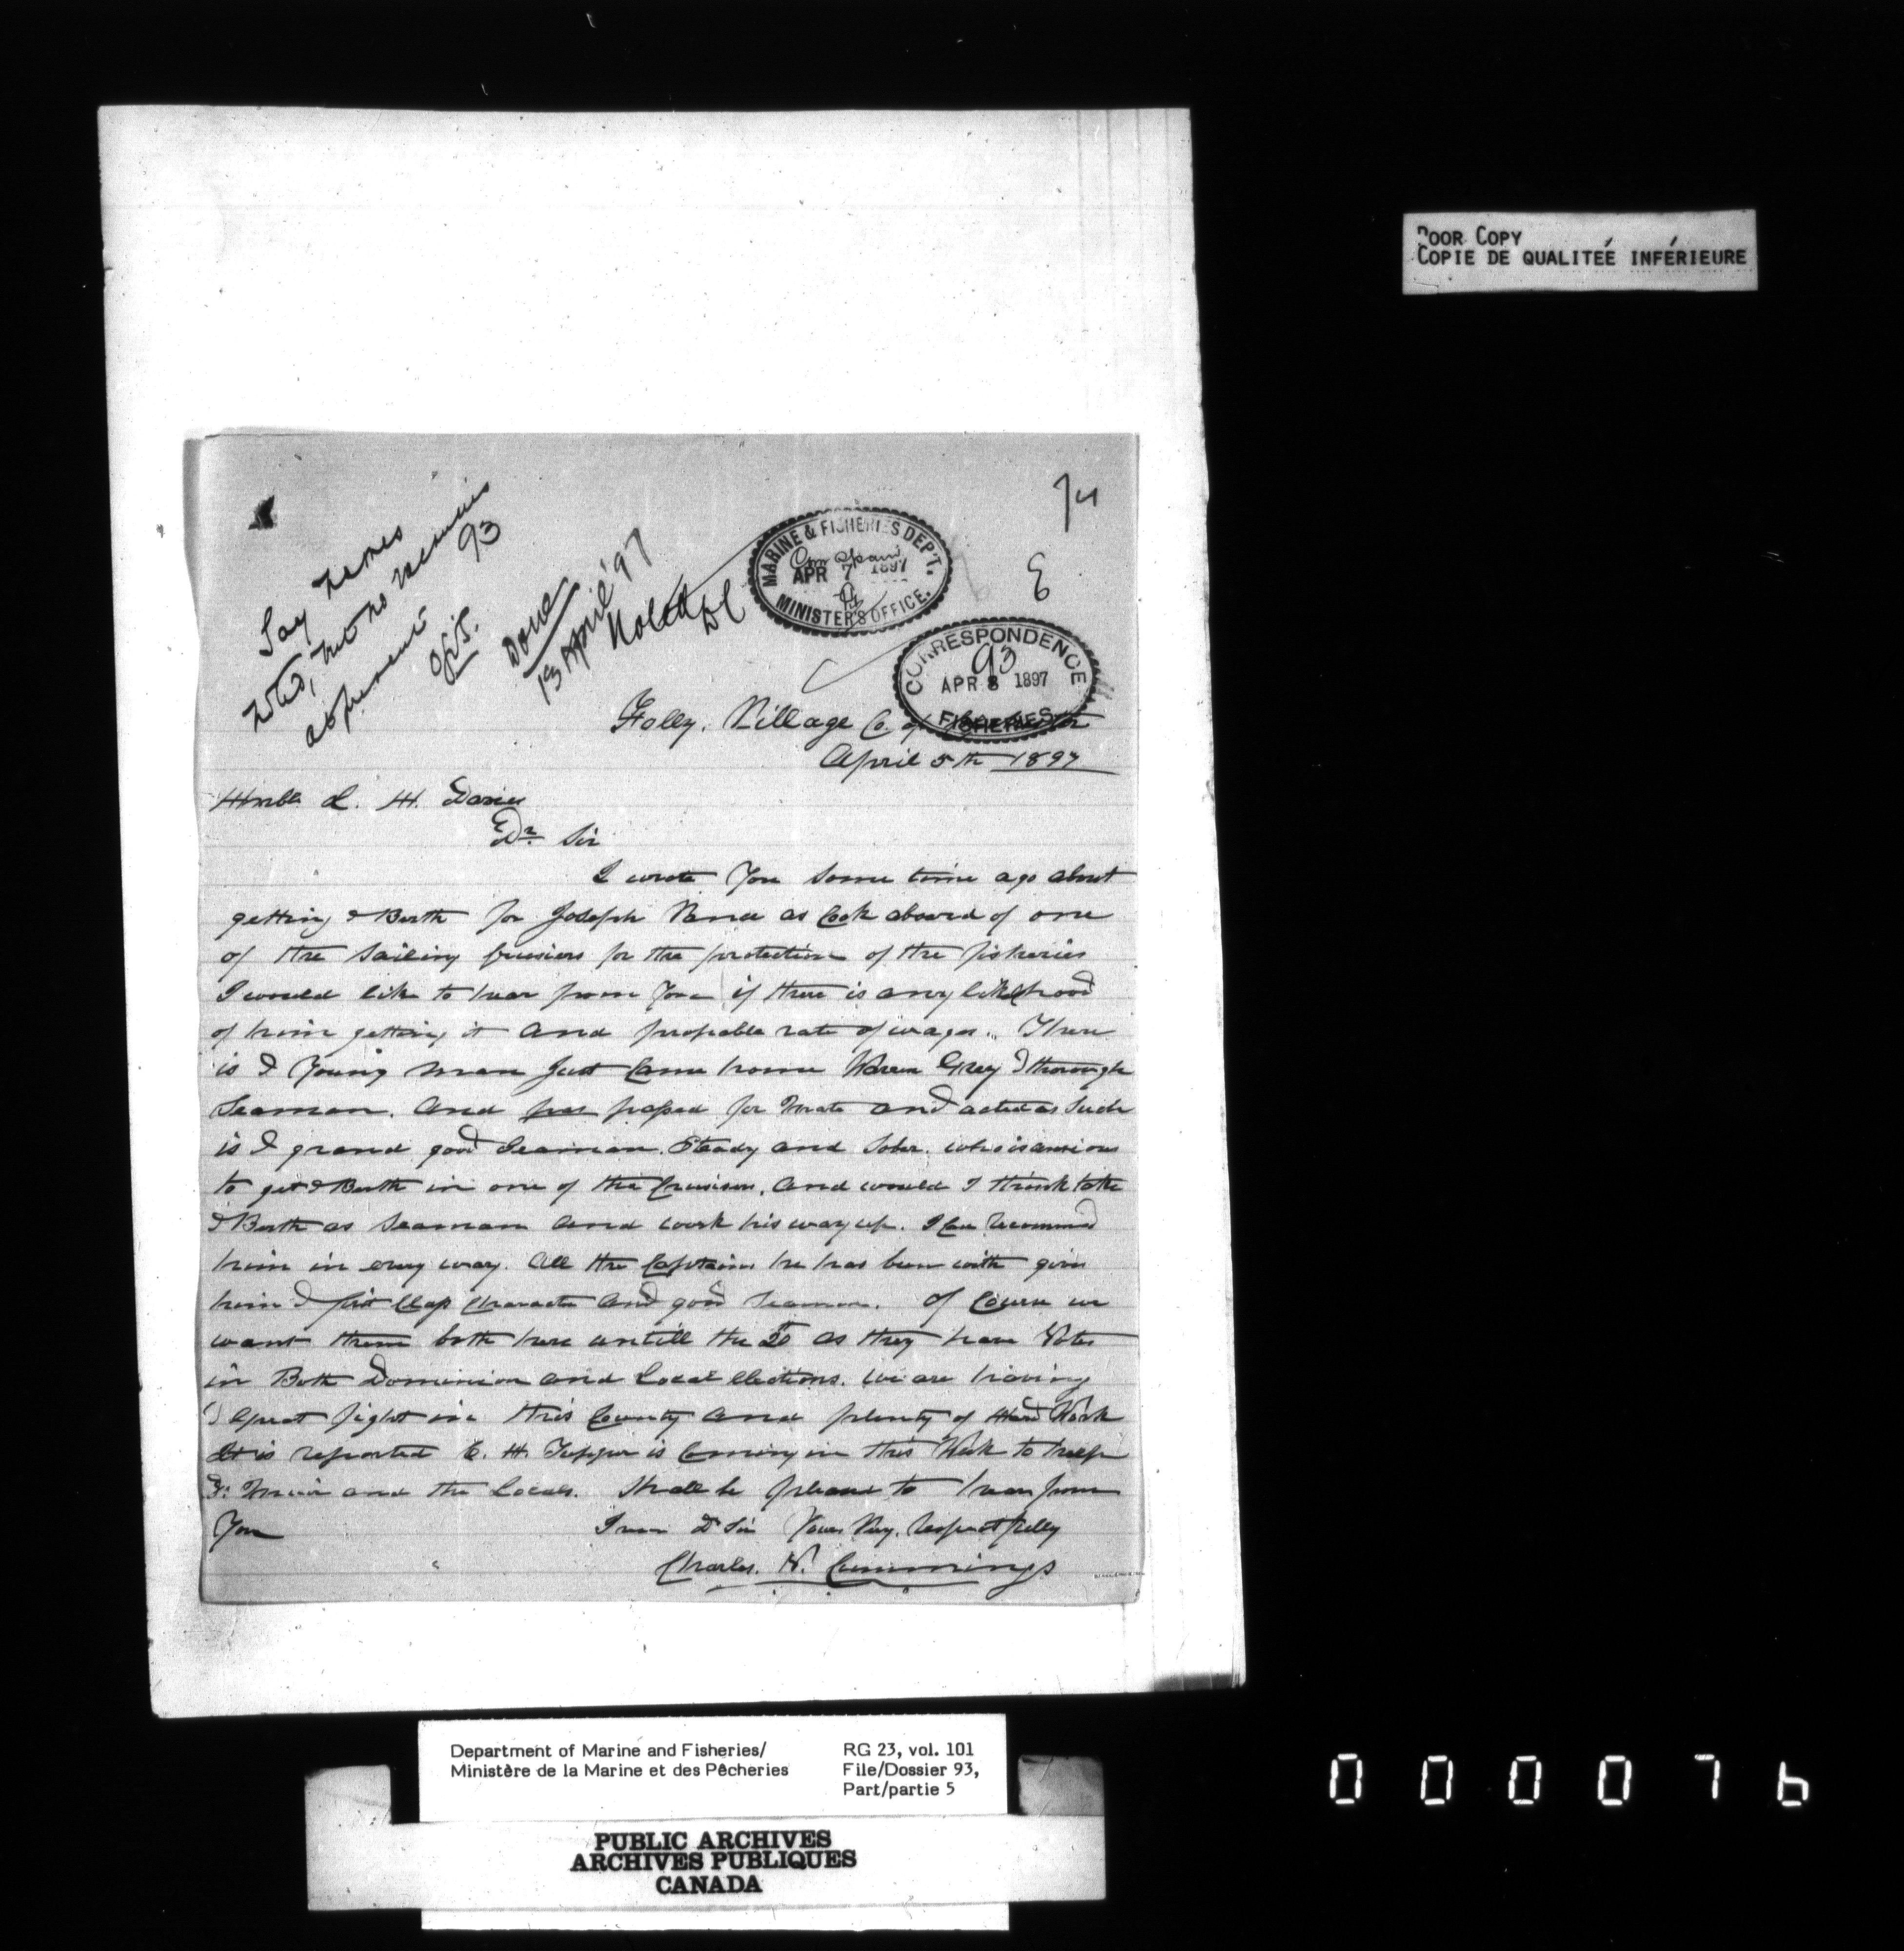 POOR COPY
COPIE DE QUALITEÉ INFÉRIEURE
74
Say names
noted, but no vacancies
at present 93
Done
13 April '97
Noted
MARINE & FISHERIES DEP'T.
APR 7 1897
MINISTER'S OFFICE.
E
CORRESPONDENCE
93
APR 8 1897
FISHERIES
Folly. Village Co. of Colchester
April 5th 1897
Honble L. H. Davies
Dr. Sir
I wrote You some time ago about
getting a Berth for Joseph Vance as Cook aboard of one
of the Sailing Cruisers for the protection of the fisheries
I would like to hear from You if there is any likelihood
of him getting it and propable rate of wages. There
is a Young man Just Came home Warren Grey a thorough
Seaman. and has passed for Mate and acted as Such
is a grand good Seaman. Steady and Sober. who is anxious
to get a Berth in one of the Cruisers, and would I think take
a Berth as Seaman and work his way up. I Can Recommend
him in every way. All the Captains he has been with gives
him a first Class Character and good Seaman. Of Course we
want them both here untill the 20 as they have Votes
in Both Dominion and Local Elections. We are having
a Great fight in this County and plenty of Hard Work
It is reported C. H. Tupper is Coming in this Week to help
Muir and the Locals. Shall be pleased to hear from
You
I am D Sir Yours Very. Respectfully
Charles. N. Cummings
Department of Marine and Fisheries/
Ministère de la Marine et des Pêcheries
RG 23, vol. 101
File/Dossier 93,
Part/partie 5
PUBLIC ARCHIVES
ARCHIVES PUBLIQUES
CANADA
000076